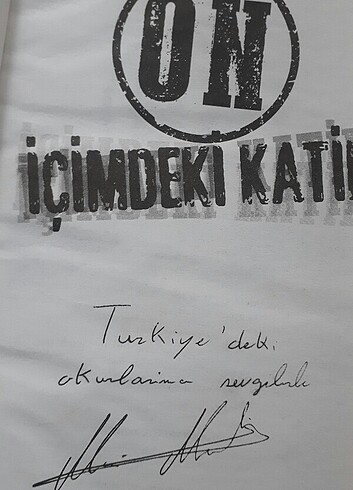 ON
İÇİMDEKİ KATİ
Turkiye'deki
okurlarıma sevgilerle